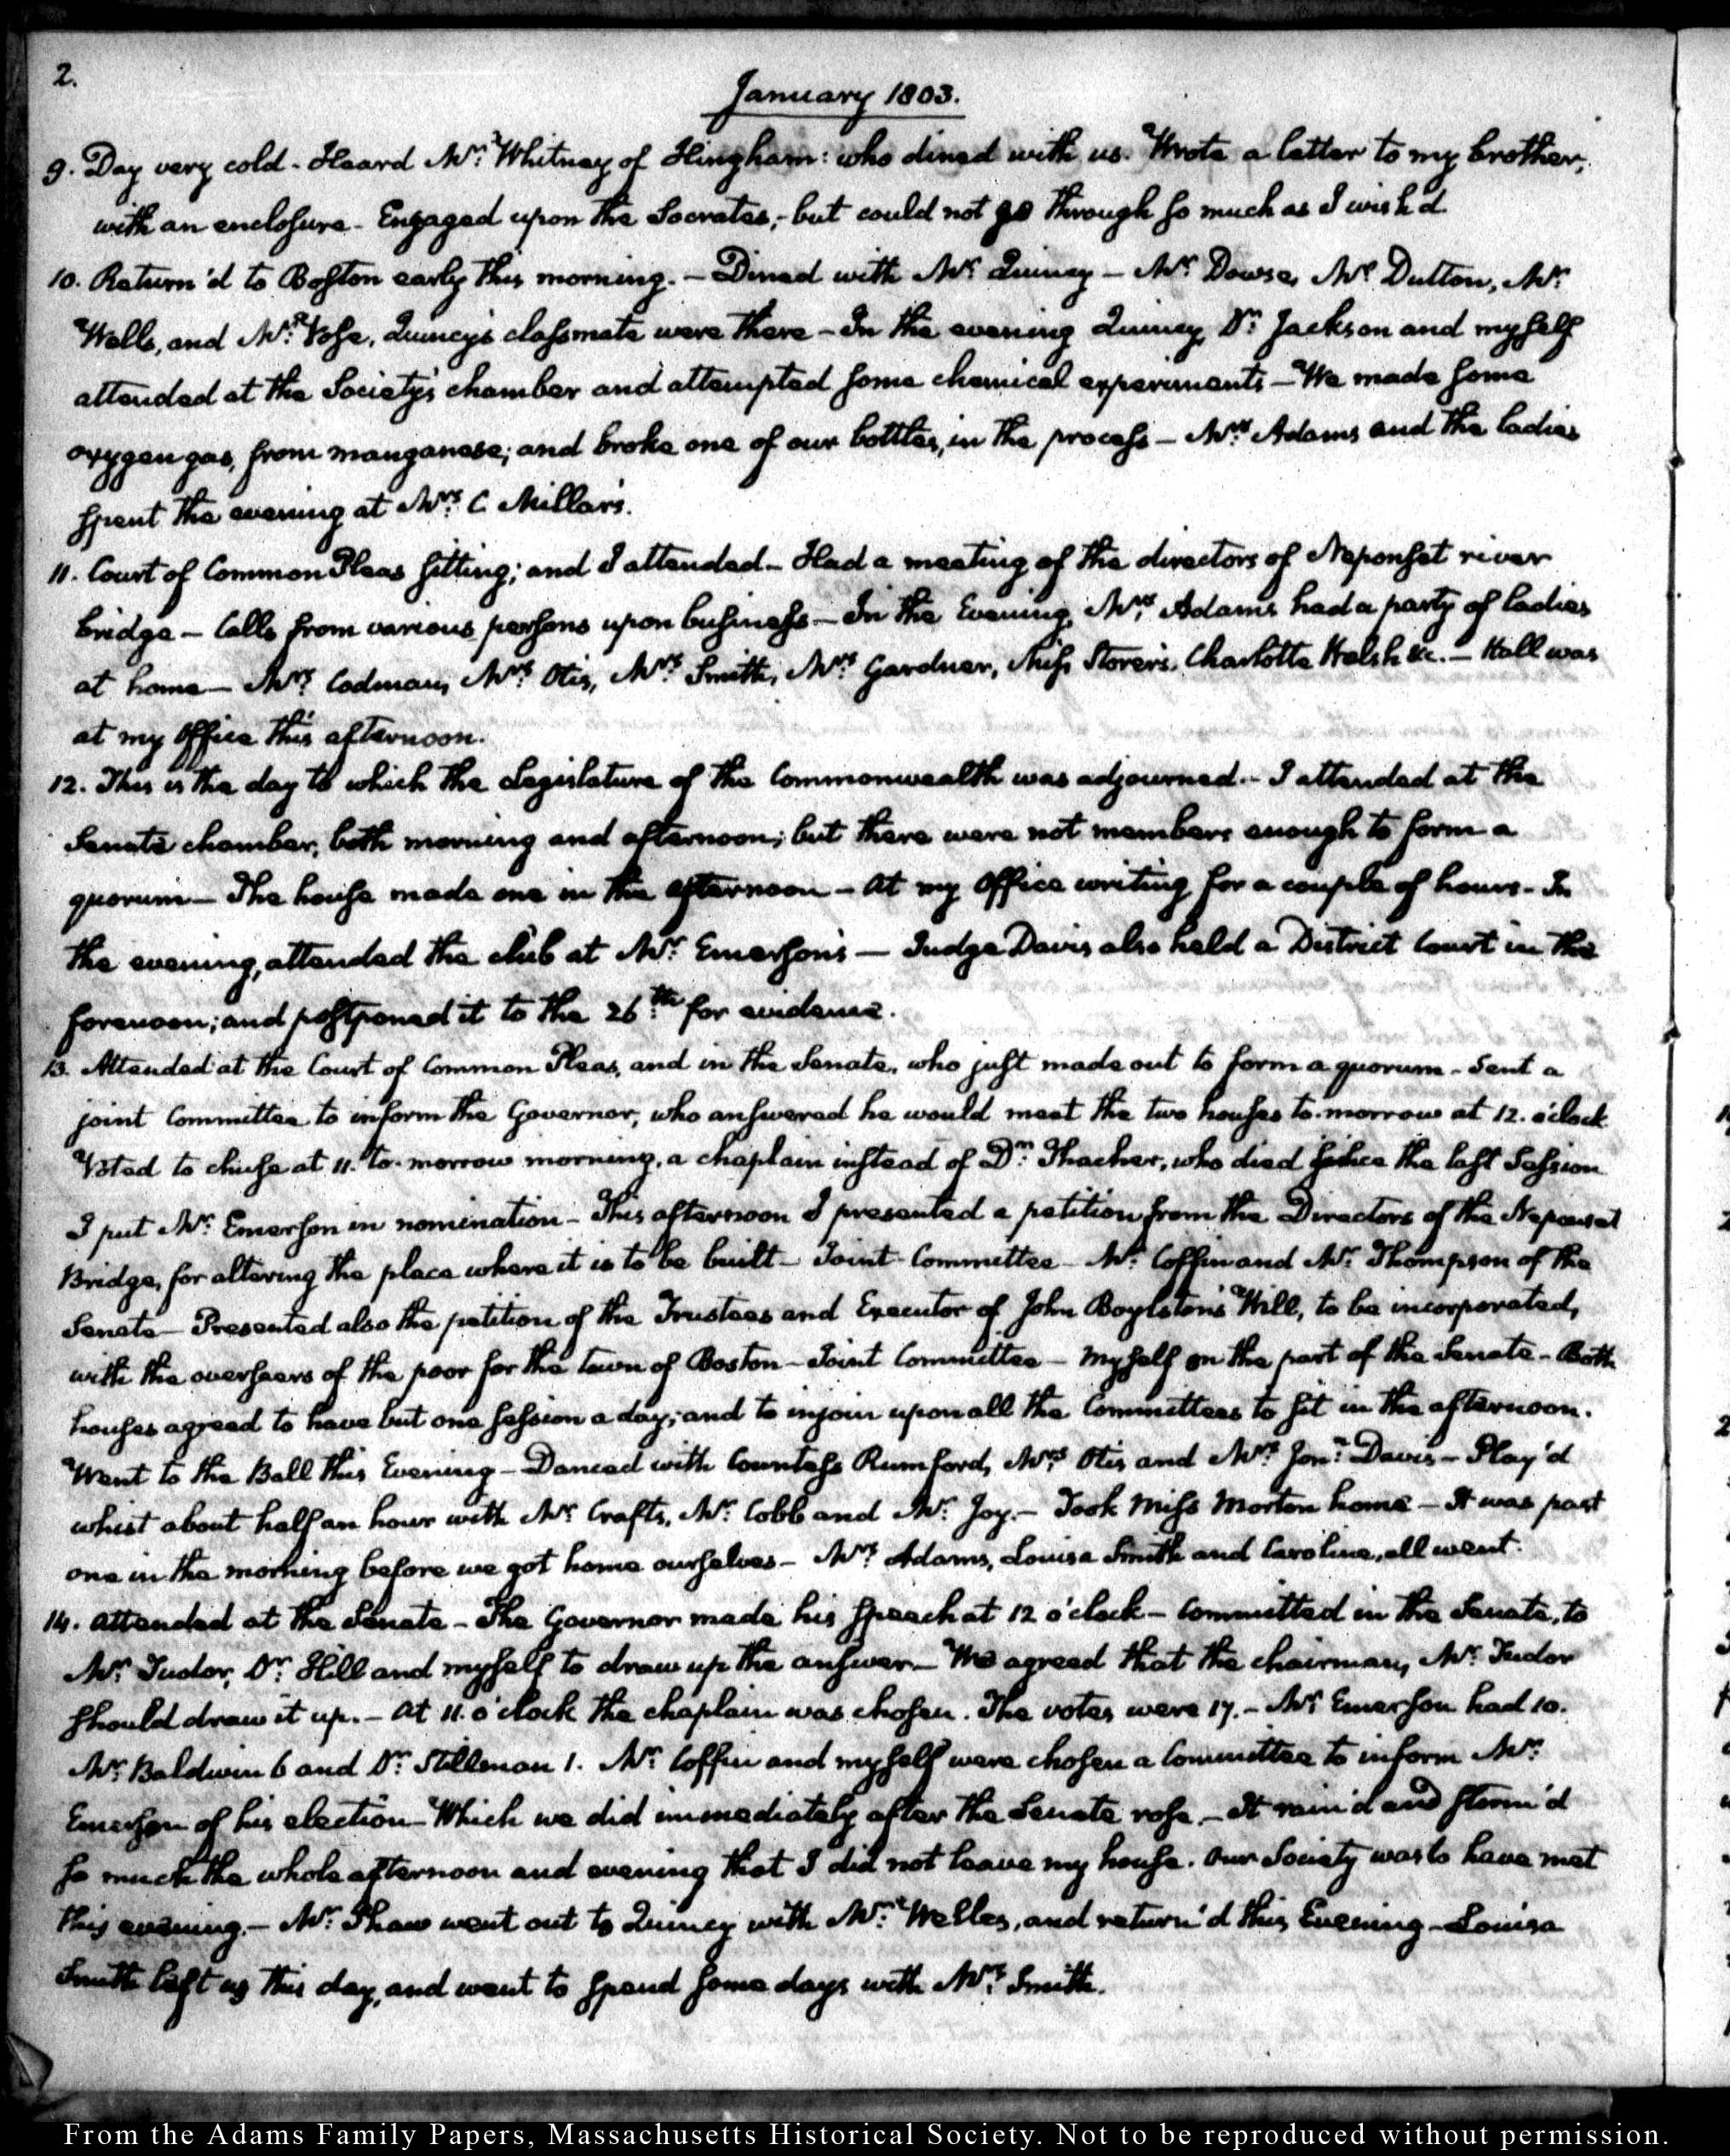 2.
January 1803.
9. Day very cold - Heard Mr: Whitney of Hingham: who dined with us. Wrote a letter to my brother,
with an enclosure - Engaged upon the Socrates,- but could not go through so much as I wish'd
10. Return'd to Boston early this morning. - Dined with Mr: Quincy - Mr: Dowse, Mr: Dutton, Mr:
Wells, and Mr: Vose, Quincy's classmate were there - In the evening Quincy, Dr: Jackson and myself
attended at the Society's chamber and attempted some chemical experiments - We made some
oxygen gas, from manganese; and broke one of our bottles, in the process - Mrs: Adams and the ladies
spent the evening at Mrs: C Miller's.
11. Court of Common Pleas sitting; and I attended - Had a meeting of the directors of Neponset river
bridge - Calls from various persons upon business - In the Evening, Mrs: Adams had a party of ladies
at home - Mrs: Codman, Mrs: Otis, Mrs: Smith, Mrs: Gardner, Miss Storer's, Charlotte Welsh &c. - Hall was
at my Office this afternoon.
12. This is the day to which the Legislature of the Commonwealth was adjourned. - I attended at the
Senate chamber, both morning and afternoon; but there were not members enough to form a
quorum - The house made one in the afternoon - At my Office writing for a couple of hours - In
the evening, attended the club at Mr: Emerson's - Judge Davis also held a District Court in the
forenoon; and postponed it to the 26:th for evidence.
13. Attended at the Court of Common Pleas, and in the Senate, who just made out to form a quorum - Sent a
joint Committee to inform the Governor, who answered he would meet the two houses to-morrow at 12. o'clock
Voted to chuse at 11. to-morrow morning, a chaplain instead of Dr: Thacher, who died since the last Session
I put Mr: Emerson in nomination - This afternoon I presented a petition from the Directors of the Neponset
Bridge, for altering the place where it is to be built - Joint Committee - Mr: Coffin and Mr: Thompson of the
Senate - Presented also the petition of the Trustees and Executor of John Boylston's Will, to be incorporated,
with the overseers of the poor for the town of Boston - Joint Committee - myself on the part of the Senate - Both
houses agreed to have but one session a day; and to injoin upon all the Committees to sit in the afternoon.
Went to the Ball this Evening - Danced with Countess Rumford, Mrs: Otis and Mrs: Jona: Davis - Play'd
whist about half an hour with Mr: Crafts, Mr: Cobb and Mr: Joy. - Took Miss Morton home - It was past
one in the morning before we got home ourselves - Mrs: Adams, Louisa Smith and Caroline, all went.
14. Attended at the Senate - The Governor made his speech at 12 o'clock - Committed in the Senate, to
Mr: Tudor, Dr: Hill and myself to draw up the answer - We agreed that the chairman, Mr: Tudor
should draw it up. - At 11. o'clock the chaplain was chosen. The votes were 17. - Mr: Emerson had 10.
Mr: Baldwin 6 and Dr: Stillman 1. Mr: Coffin and myself were chosen a Committee to inform Mr:
Emerson of his election - Which we did immediately after the Senate rose. - It rain'd and storm'd
so much the whole afternoon and evening that I did not leave my house. Our Society was to have met
this evening. - Mr: Shaw went out to Quincy with Mr: Welles, and return'd this Evening - Louisa
Smith left us this day, and went to spend some days with Mrs: Smith.
From the Adams Family Papers, Massachusetts Historical Society. Not to be reproduced without permission.